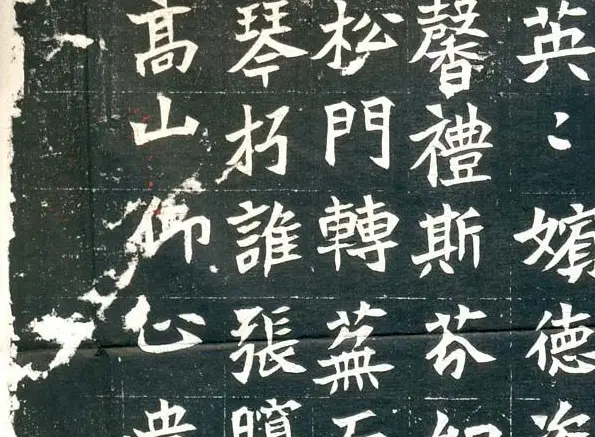 英〻嬪德
馨禮斯芬
松門轉蕪
琴朽誰張
高山仰止